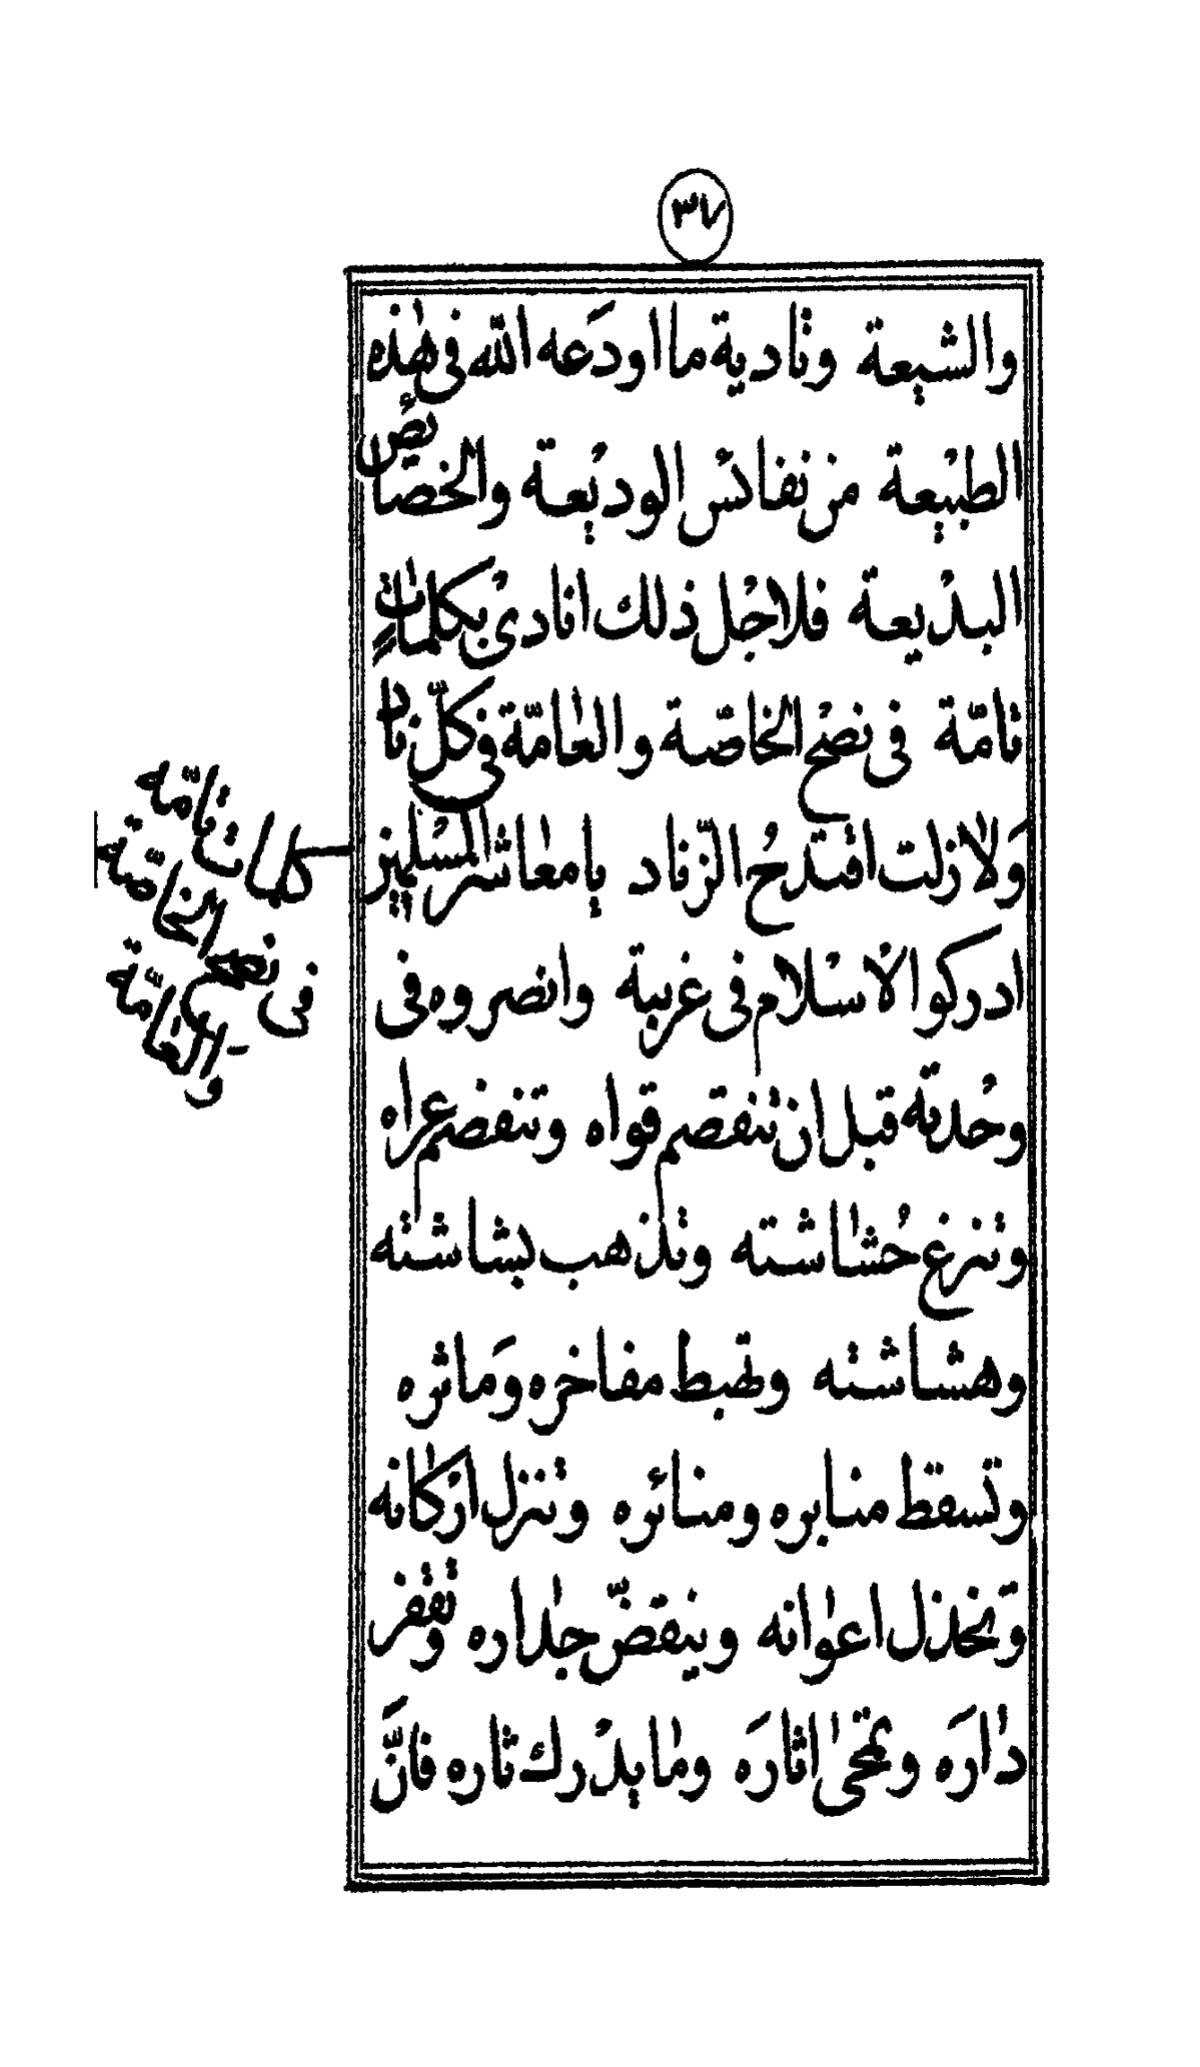 ٣٧
والشيعة وتادية ما اودَعه اللّه فى هٰذه
الطبيْعة من نفائس الوديْعة والخصَائص
البدْيعة فلاجْل ذلك انادىْ بكلمٰاتٍ
تامّة فى نصْح الخاصّة والعٰامّة فى كلّ ناد
وَلازلت اقتدحُ الزّناد يا معٰاشر المسْلمين
ادركوا الاسْلام فى غربته وانصروه فى
وحْدته قبل ان تنقصم قواه وتنفصم عراه
وتنزغ حُشٰاشته وتذهب بشاشته
وهشاشته وتهبط مفاخره وَماثره
وتسقط منابره ومنائره وتنزل ارْكٰانه
وتخذل اعوٰانه وينقضّ جدٰاره وتقفر
دٰارَه وتمحىٰ اثارَه ومٰا يدْرك ثاره فانَّ
كلمات تامّه
فى نصح الخاصّه
وَالعٰامّة